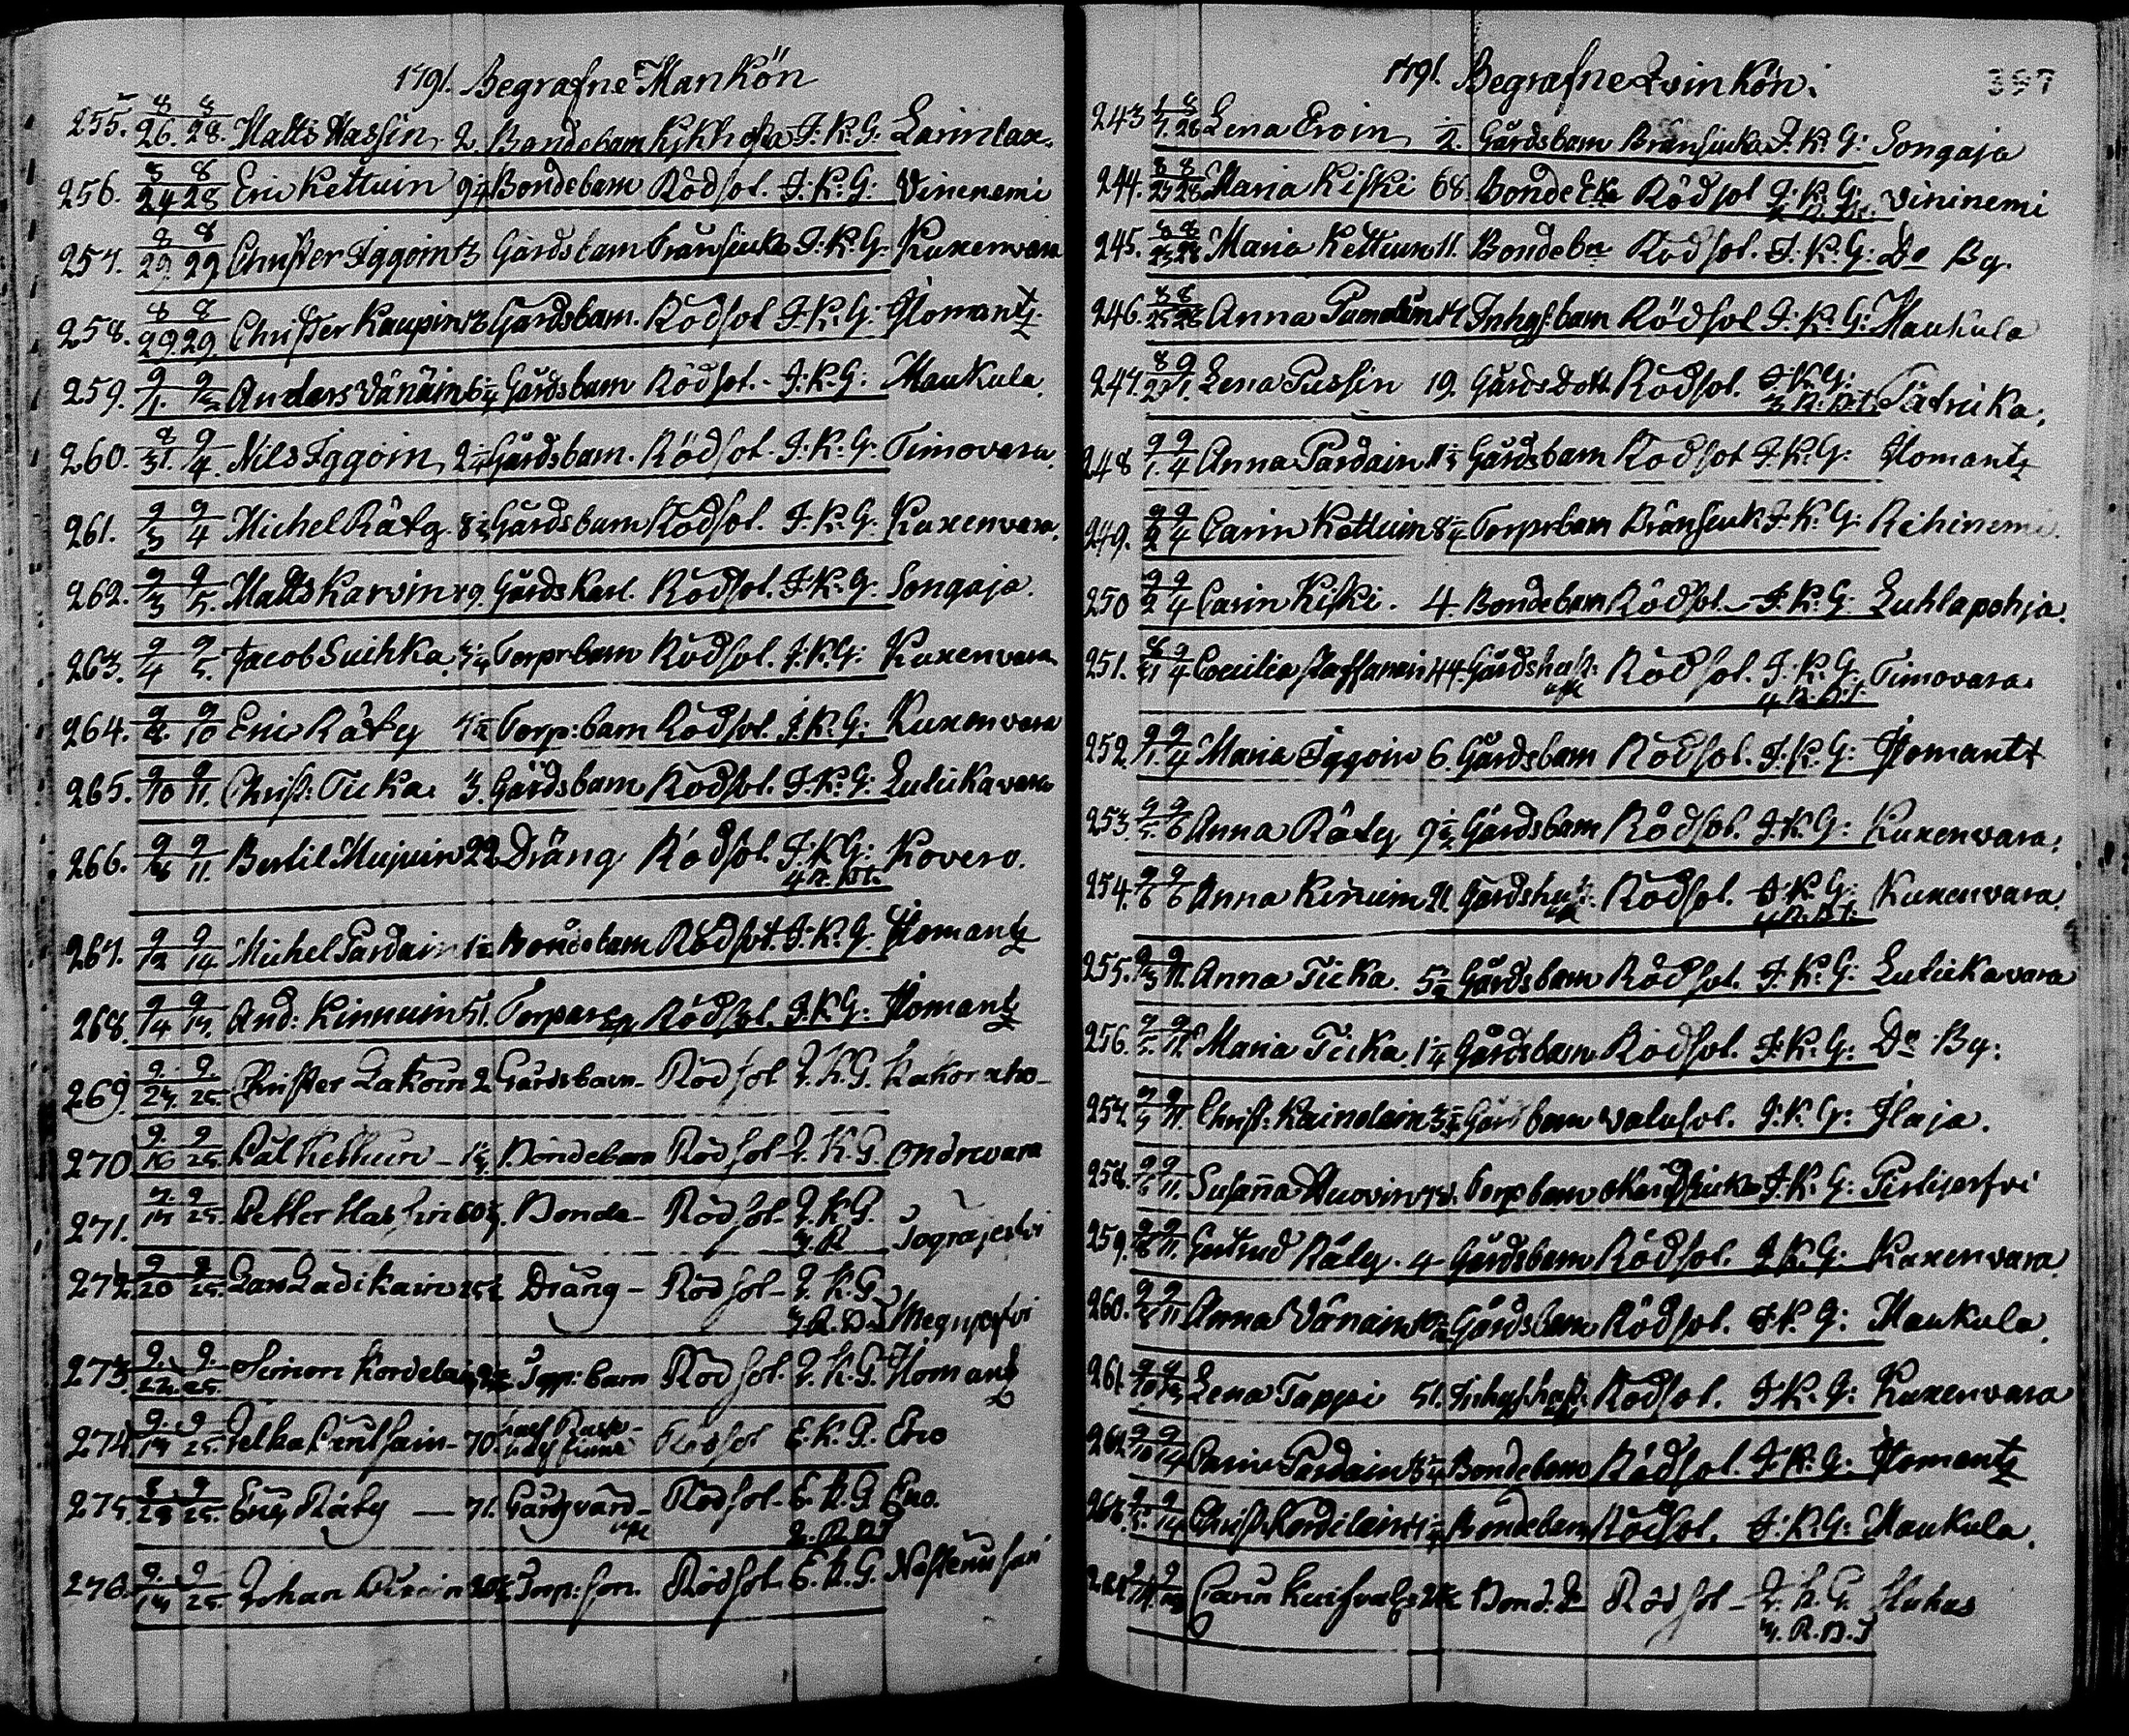 1791. Begrafne Mankön
255. 8/26. 8/28. Matts Hassin, 2. Bondebarn Kikhosta I: K: G: Larinlax.
256. 8/24 8/28 Eric Kettuin 9 1/4 Bondebarn Rödsot. I: K: G: Vininemi
257. 8/29 8/29 Christer Iggoin Gårdsbarn Bränsiuka I: K: G: Kuxenvara
258. 8/29. 8/29. Christer Kaupin Gårdsbarn. Rödsot I: K: G: Ilomantz
259. 9/1. 9/2 Anders Vänäin 6 1/4 Gårdsbarn Rödsot. I: K: G: Maukula.
260. 8/31. 9/4. Nils Iggoin, 2 1/4 Gårdsbarn. Rödsot I: K: G: Timovara.
261. 9/3 9/4 Michel Räty 8 1/2 Gårdsbarn Rödsot. I: K: G: Kuxenvara.
262. 9/3 9/5. Matts Karvin 29. Gårdskarl. Rödsot. I: K: G: Songaja.
263. 9/4 9/5. Jacob Suihka. 3 1/4 Torprbarn Rödsot. I: K: G: Kuxenvara
264. 9/8. 9/10 Eric Räty 4 1/2 Torp: barn Rödsot. I: K: G: Kuxenvara
265. 9/10 9/11. Christ: Ticka. 3. Gårdsbarn Rödsot. I: K: G: Lutickavara
266. 9/8 9/11. Bertil Mujuin 22 Dräng Rödsot. I: K: G: Kovero.
4 R. Dt.
267. 9/12 9/14 Michel Pardain 1 1/2 Bondebarn Rödsot. I: K: G: Ilomantz
268. 9/14 9/17. And: Kinnuin 51. Torpare Rödsot. I: K: G: Ilomantz
269. 9/24. 9/25. Christer Lakoin 2 Gårdsbarn Rödsot I. K. G. Kakonaho
270 9/16 9/25. Pål Kettuin 1 1/2 Bondebarn Rödsot I. K. G. Ondrevara
271. 9/17 9/25. Petter Hassin 60 Bonde Rödsot I. K. G.
3. R
272. 9/20 9/25. Lars Ladikain 25 Dräng Rödsot I. K. G.
3. R. D. Megrijerfvi
273. 9/22. 9/25. Simon Kordelain Torp: barn Rödsot. I. K. G. Ilomantz
274. 9/17 9/25. 70. Rödsot E. K. G. Eno
275. 8/28 9/25. Eric Räty 71. Gårdzvärd Rödsot E. K. G. Eno.
2. R. D.
276. 9/17 9/25. Johan Torp: son. Rödsot E. K. G.
1791. Begrafne Qvinkön. 397
243 8/7. 8/28 Lena Eroin, 1/2. Gårdsbarn Bränsiuka I. K. G: Songaja
244. 8/25 8/28 Maria Kiski 68. Bonde Eka Rödsot I: K: G: Vininemi
245. 8/25 8/28 Maria Kettuin 11. Bondebn Rödsot. I: K: G: Do By.
246. 8/25 8/28 Anna Inhysbarn Rödsot I: K: G: Maukula
247. 8/27 9/1. Lena Pussin 19. Gårds Dott Rödsot. I: K: G:
3 R: D: t:
248 9/1. 9/4 Anna Pardain Gårdsbarn Rödsot I: K: G: Ilomantz
249. 9/2 9/4 Carin Kettuin 8 1/4 Torprbarn Bränsiuk I: K: G: Rihinemi.
250 9/2 9/4 Carin Kiski. 4. Bondebarn Rödsot. I: K: G: Luhtapohja.
251. 8/31 9/4. Coecilia 44. Gårdshust: Rödsot. I: K: G: Timovara.
4. R. D. t.
252. 9/1. 9/4 Maria Iggoin 6. Gårdsbarn Rödsot. I: K: G: Ilomants
253. 9/5. 9/6 Anna Räty 9 1/2 Gårdsbarn Rödsot. I: K: G: Kuxenvara.
254. 9/6 9/6 Anna Kinuin 21. Gårdshust: Rödsot. I: K: G: Kuxenvara.
4 R. D. t.
255. 9/3 9/11. Anna Ticka. 5 1/2 Gårdsbarn Rödsot. I: K: G: Luticka vara
256. 9/5. 9/11 Maria Ticka 1 1/4 Gårdsbarn Rödsot. I: K: G: Do By:
257. 9/9 9/11. Christ: Kainolain 3 1/2 Gårdsbarn Vatusot. I: K: G: Ilaja.
258. 9/6 9/11. Susanna Torpbarn I: K: G:
259. 9/8 9/11. Gertrud Räty. 4 Gårdsbarn Rödsot. I: K: G: Kuxenvara.
260. 9/11 Anna Vänain Gårdsbarn Rödsot. I: K: G: Maukula.
261. 9/10 9/13 Lena Tappi 51. Inhyshust: Rödsot. I: K: G: Kuxenvara
262. 9/10 9/14 Carin Pardain Bondebarn Rödsot. I: K: G: Ilomantz
263. 9/14 Christ: Kordelain Bondebarn Rödsot. I: K: G: Maukula.
Carin Rödsot I. K. G. Huhus
3. R. D. T